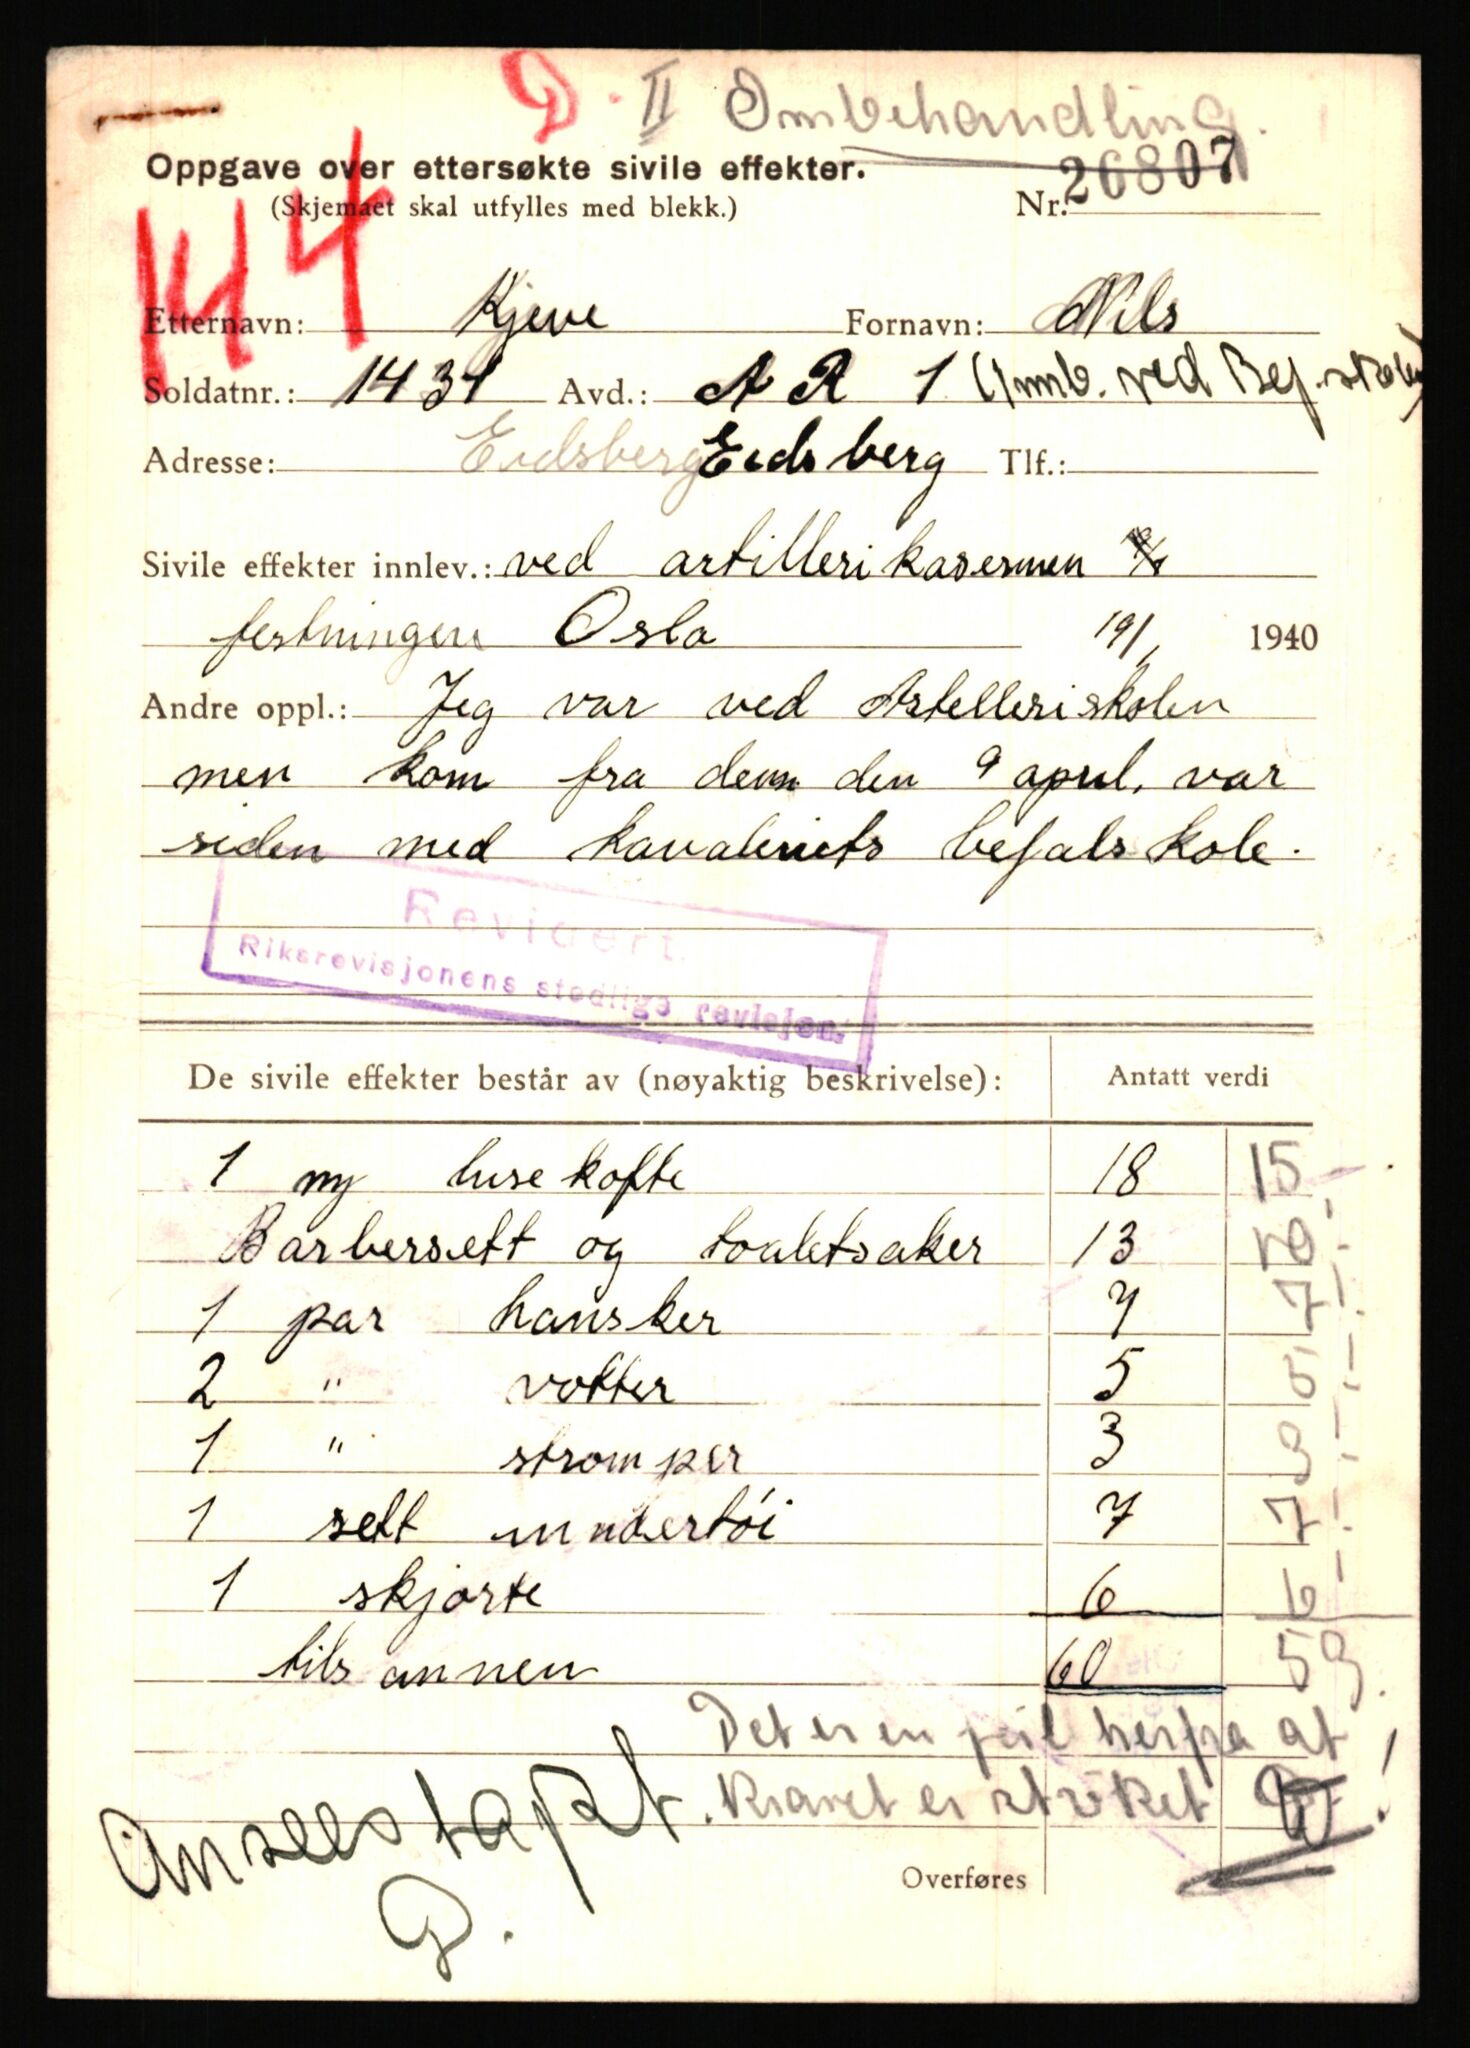 D. II Ombehandling.
Oppgave over ettersøkte sivile effekter.
(Skjemaet skal utfylles med blekk.)
Nr. 26807
H4
Etternavn: Kjeve Fornavn: Nils
Soldatnr.: 1431 Avd.: A R 1 (Innb. ved Bef.skolen)
Adresse: Eidsberg Eidsberg Tlf.:
Sivile effekter innlev.: ved artillerikasermen
festningen Oslo 19/1 1940
Andre oppl.: Jeg var ved Artelleriskolen
men kom fra dem den 9 april, var
siden med kavaleriets befalskole.
Revidert.
Riksrevisjonens stedlige revisjon.
De sivile effekter består av (nøyaktig beskrivelse): Antatt verdi
1 ny lusekofte 18 15 -
Barbersett og toaletsaker 13 10 -
1 par hansker 7 7 -
2 " votter 5 5 -
1 " strømper 3 3 -
1 sett undertói 7 7 -
1 skjorte 6 6
tilsammen 60 53
Det er en feil herfra at
kravet er strøket !
Ansees tapt.
D.
Overføres